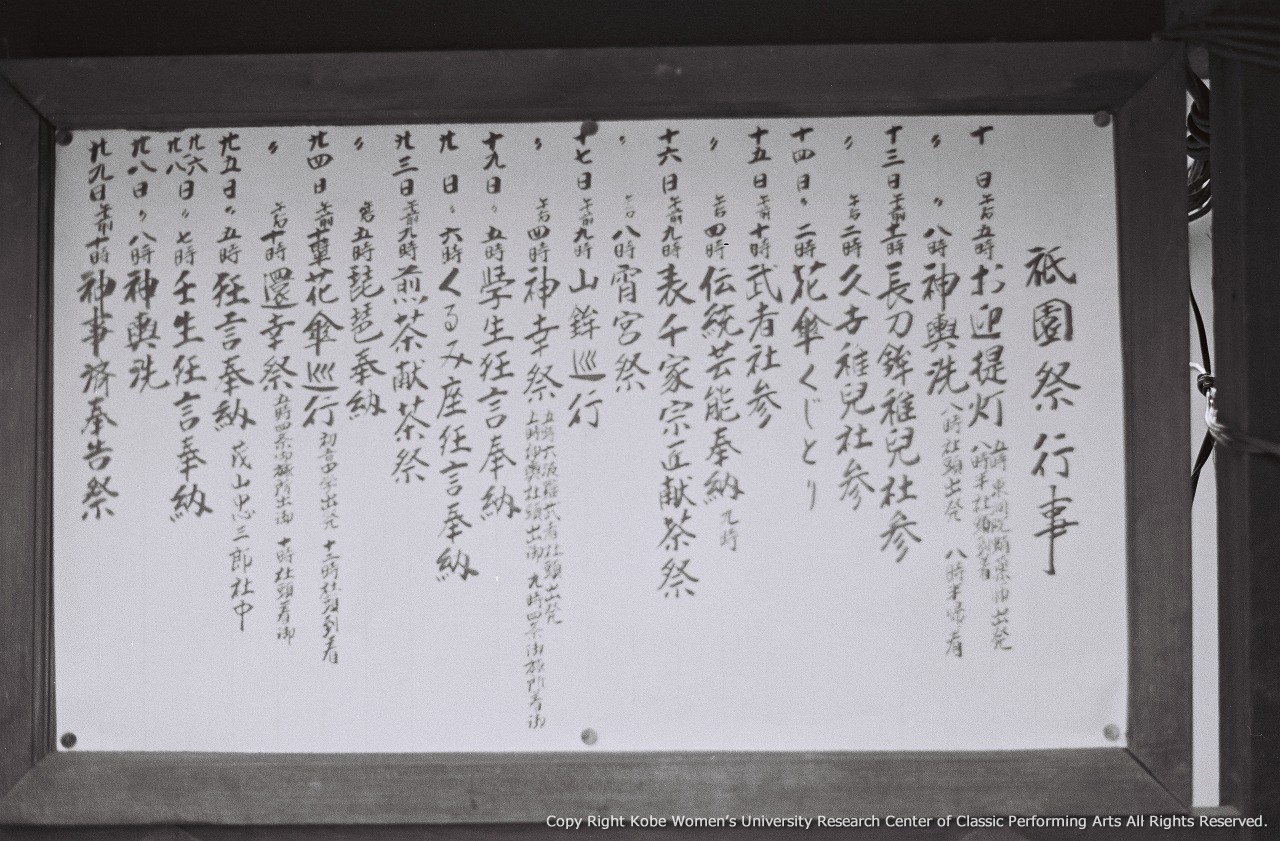 祇園祭行事
十日午后五時お迎提灯 五時東洞院錦薬師出発 八時半社頭到着
〃 〃八時神輿洗 八時社頭出発 八時半帰着
十三日午前十一時長刀鉾稚児社参
〃 午后二時久世稚児社参
十四日〃二時花傘くじとり
十五日午前十時武者社参
〃 午后四時伝統芸能奉納 九時
十六日午前九時表千家宗匠献茶祭
〃 午后八時宵宮祭
十七日午前九時山鉾巡行
〃 午后四時神幸祭 五時 武者社頭出発 五時 社頭出御 九時四条御旅所着御
十九日〃五時学生狂言奉納
廿日〃六時くるみ座狂言奉納
廿三日午前九時煎茶献茶祭
〃 五時琵琶奉納
廿四日午前十時花傘巡行 出発 十二時社頭到着
〃 午后十時還幸祭 五時四条御旅所出御 十時社頭着御
廿五日〃五時狂言奉納 茂山忠三郎社中
廿六廿八日〃七時壬生狂言奉納
廿八日〃八時神輿洗
廿九日午前十時神事済奉告祭
Copy Right Kobe Women's University Research Center of Classic Performing Arts All Rights Reserved.